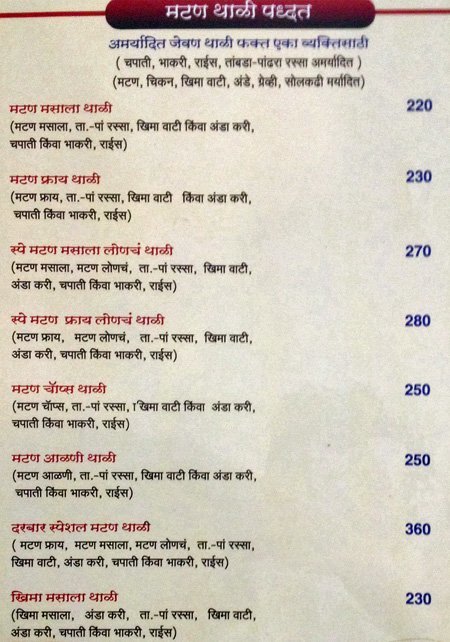 मटण थाळी पध्दत
अमर्यादित जेवण थाळी फक्त एका व्यक्तिसाठी
( चपाती, भाकरी, राईस, तांबडा-पांढरा रस्सा अमर्यादित )
(मटण, चिकन, खिमा वाटी, अंडे, ग्रेव्ही, सोलकढी मर्यादित)
मटण मसाला थाळी 220
(मटण मसाला, ता.-पां रस्सा, खिमा वाटी किंवा अंडा करी,
चपाती किंवा भाकरी, राईस)
मटण फ्राय थाळी 230
(मटण फ्राय, ता.-पां रस्सा, खिमा वाटी किंवा अंडा करी,
चपाती किंवा भाकरी, राईस)
स्पे मटण मसाला लोणचं थाळी 270
(मटण मसाला, मटण लोणचं, ता.-पां रस्सा, खिमा वाटी,
अंडा करी, चपाती किंवा भाकरी, राईस)
स्पे मटण फ्राय लोणचं थाळी 280
(मटण फ्राय, मटण लोणचं, ता.-पां रस्सा, खिमा वाटी,
अंडा करी, चपाती किंवा भाकरी, राईस)
मटण चॅाप्स थाळी 250
(मटण चॅाप्स, ता.-पां रस्सा, खिमा वाटी किंवा अंडा करी,
चपाती किंवा भाकरी, राईस)
मटण आळणी थाळी 250
(मटण आळणी, ता.-पां रस्सा, खिमा वाटी किंवा अंडा करी,
चपाती किंवा भाकरी, राईस)
दरबार स्पेशल मटण थाळी 360
( मटण फ्राय, मटण मसाला, मटण लोणचं, ता.-पां रस्सा,
खिमा वाटी, अंडा करी, चपाती किंवा भाकरी, राईस)
खिमा मसाला थाळी 230
(खिमा मसाला, अंडा करी, ता.-पां रस्सा, खिमा वाटी,
अंडा करी, चपाती किंवा भाकरी, राईस)